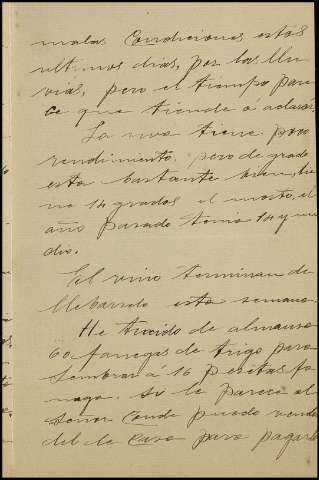 malas Condiciones estos
ultimos dias, por las llu
vias, pero el tiempo pare
ce que tiende á aclarar.
La uva tiene poco
rendimento. pero de grado
esta bastante bien, tie
ne 14 grados el mosto, el
año pasado tenia 14 y me
dio.
El vino terminan de
llebarselo esta semana.
He traido de almansa
60 fanegas de trigo para
Sembrar á 16 pesetas fa
nega. Si le parece al
Señor Conde puedo vender
del de Casa para pagarlo